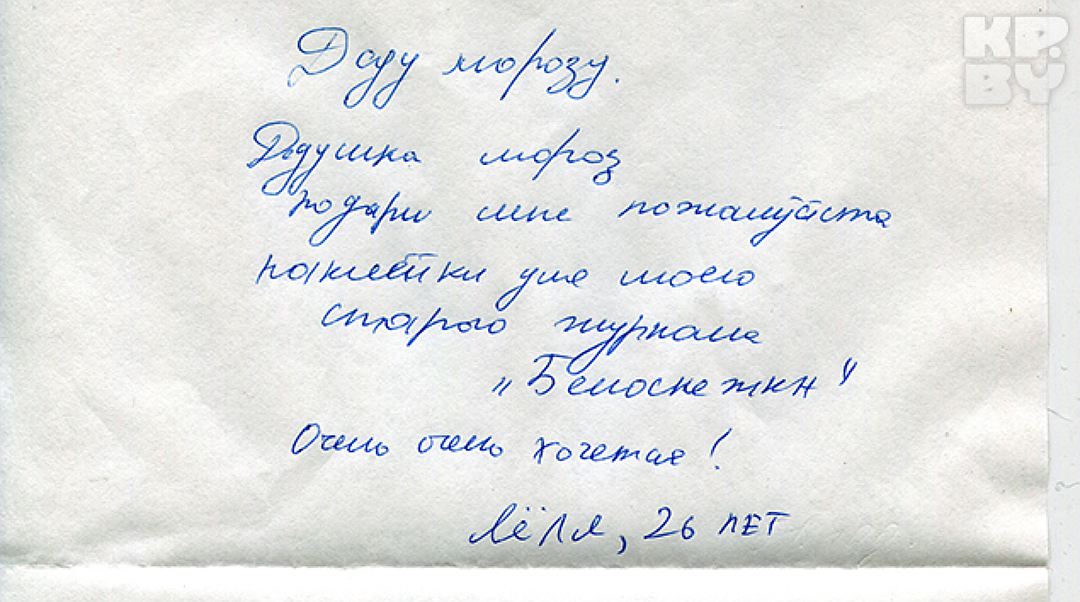 KP.
BY
Деду морозу.
Дедушка мороз
подари мне пожалуйста
наклейки для моего
старого журнала
"Белоснежки"
Очень очень хочется!
Лёля, 26 ЛЕТ